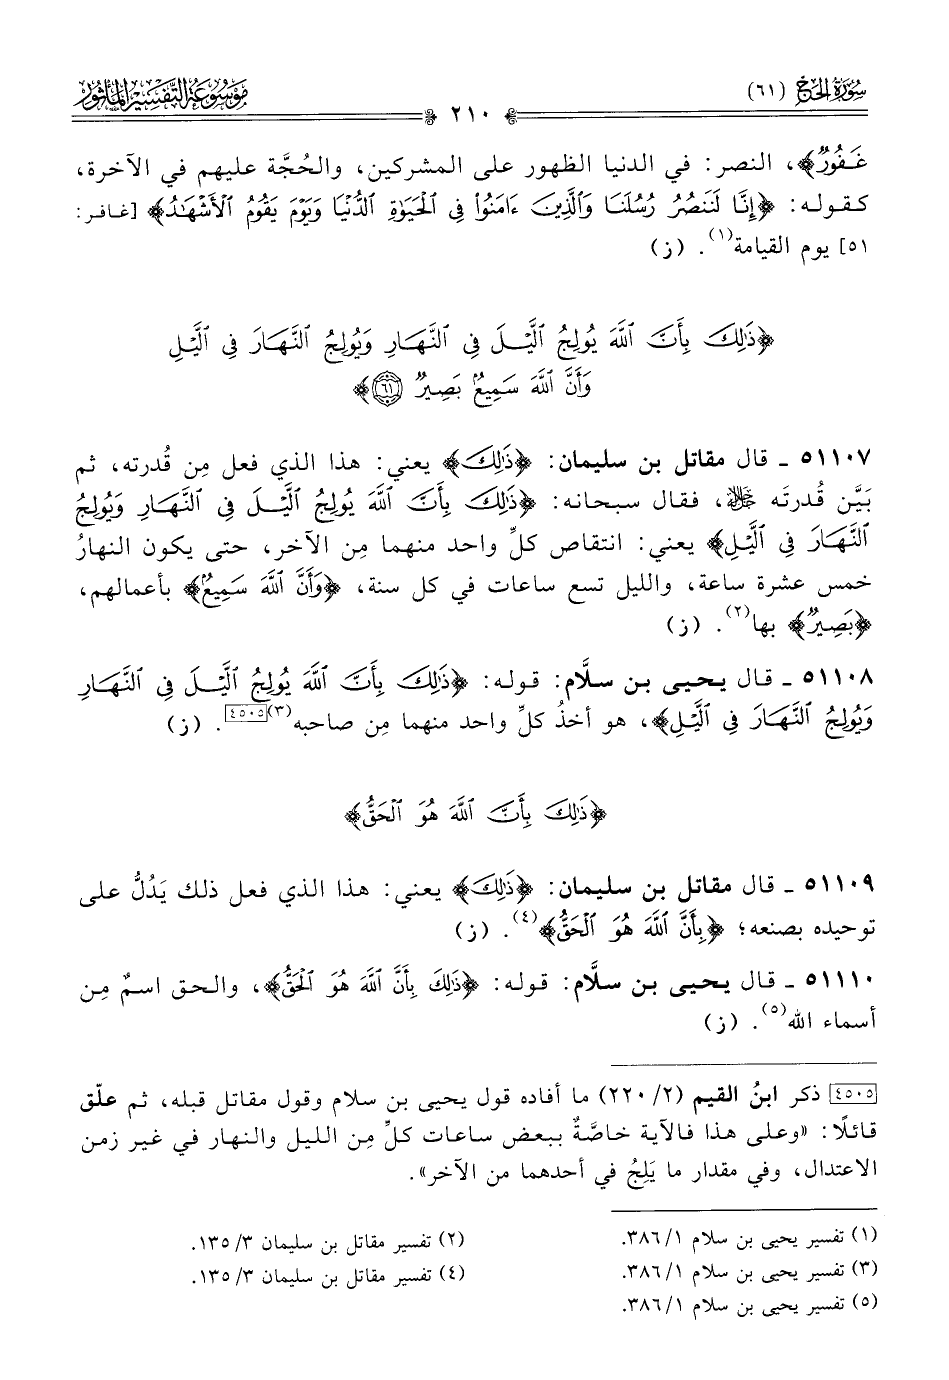 سُورَةُ الحَجِّ (٦١)
٢١٠
مَوْسُوعَةُ التَّفْسِيرِ المَأْثُور
غَفُورٌ﴾، النصر: في الدنيا الظهور على المشركين، والحُجَّة عليهم في الآخرة،
كقوله: ﴿إِنَّا لَنَنصُرُ رُسُلَنَا وَٱلَّذِينَ ءَامَنُوا۟ فِى ٱلْحَيَوٰةِ ٱلدُّنْيَا وَيَوْمَ يَقُومُ ٱلْأَشْهَـٰدُ﴾ [غافر:
٥١] يوم القيامة(١). (ز)
﴿ذَٰلِكَ بِأَنَّ ٱللَّهَ يُولِجُ ٱلَّيْلَ فِى ٱلنَّهَارِ وَيُولِجُ ٱلنَّهَارَ فِى ٱلَّيْلِ
وَأَنَّ ٱللَّهَ سَمِيعٌۢ بَصِيرٌ ٦١﴾
٥١١٠٧ ـ قال مقاتل بن سليمان: ﴿ذَٰلِكَ﴾ يعني: هذا الذي فعل مِن قُدرته، ثم
بَيَّن قُدرتَه ﷻ، فقال سبحانه: ﴿ذَٰلِكَ بِأَنَّ ٱللَّهَ يُولِجُ ٱلَّيْلَ فِى ٱلنَّهَارِ وَيُولِجُ
ٱلنَّهَارَ فِى ٱلَّيْلِ﴾ يعني: انتقاص كلِّ واحد منهما مِن الآخر، حتى يكون النهارُ
خمس عشرة ساعة، والليل تسع ساعات في كل سنة، ﴿وَأَنَّ ٱللَّهَ سَمِيعٌۢ﴾ بأعمالهم،
﴿بَصِيرٌ﴾ بها(٢). (ز)
٥١١٠٨ ـ قال يحيى بن سلَّام: قوله: ﴿ذَٰلِكَ بِأَنَّ ٱللَّهَ يُولِجُ ٱلَّيْلَ فِى ٱلنَّهَارِ
وَيُولِجُ ٱلنَّهَارَ فِى ٱلَّيْلِ﴾، هو أخذُ كلِّ واحد منهما مِن صاحبه(٣)[٤٥٠٥]. (ز)
﴿ذَٰلِكَ بِأَنَّ ٱللَّهَ هُوَ ٱلْحَقُّ﴾
٥١١٠٩ ـ قال مقاتل بن سليمان: ﴿ذَٰلِكَ﴾ يعني: هذا الذي فعل ذلك يَدُلُّ على
توحيده بصنعه؛ ﴿بِأَنَّ ٱللَّهَ هُوَ ٱلْحَقُّ﴾(٤). (ز)
٥١١١٠ ـ قال يحيى بن سلَّام: قوله: ﴿ذَٰلِكَ بِأَنَّ ٱللَّهَ هُوَ ٱلْحَقُّ﴾، والحق اسمٌ مِن
أسماء الله(٥). (ز)
[٤٥٠٥] ذكر ابنُ القيم (٢/ ٢٢٠) ما أفاده قول يحيى بن سلام وقول مقاتل قبله، ثم علّق
قائلًا: «وعلى هذا فالآية خاصَّةٌ ببعض ساعات كلٍّ مِن الليل والنهار في غير زمن
الاعتدال، وفي مقدار ما يَلِجُ في أحدهما من الآخر».
(١) تفسير يحيى بن سلام ١/ ٣٨٦.
(٢) تفسير مقاتل بن سليمان ٣/ ١٣٥.
(٣) تفسير يحيى بن سلام ١/ ٣٨٦.
(٤) تفسير مقاتل بن سليمان ٣/ ١٣٥.
(٥) تفسير يحيى بن سلام ١/ ٣٨٦.